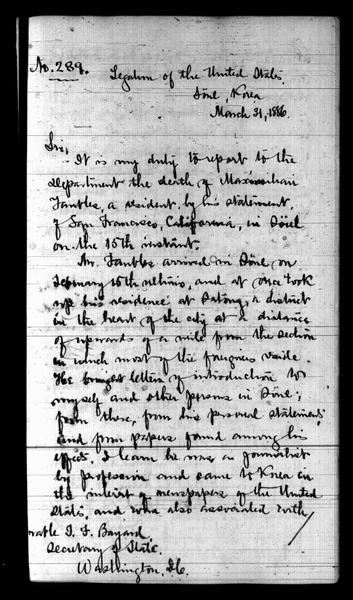 No. 289.
Legation of the United States,
Söul, Korea
March 31, 1886.
Sir,
It is my duty to report to the
Department the death of Maximilian
Taubles, a resident, by his statement,
of San Francisco, California, in Söul
on the 15th instant.
Mr. Taubles arrived in Söul, on
February 15th ultimo, and at once took
up his residence at Patong, a district
in the heart of the city at a distance
of upwards of a mile from the section
in which most of the foreigners reside.
He brought letters of introduction to
myself and other persons in Söul;
from these, from his personal statements,
and from papers found among his
effects, I learn he was a journalist
by profession and came to Korea in
the interest of newspapers of the United
States, and was also associated with
T. F. Bayard,
Secretary of State,
Washington, D.C.